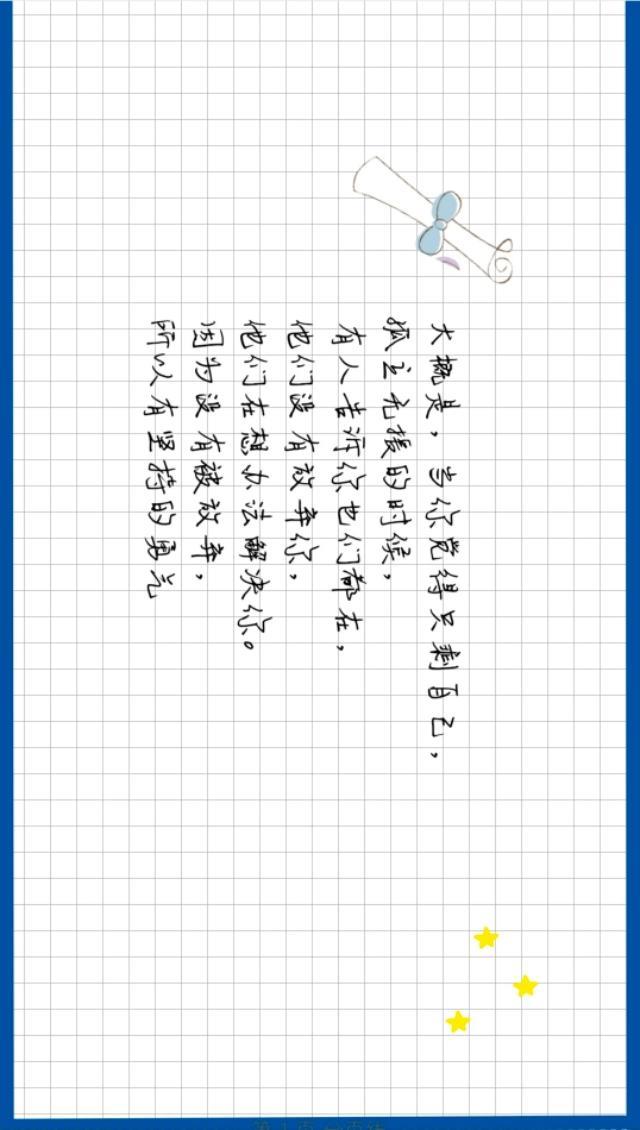 大概是，当你觉得只剩自己，
孤立无援的时候，
有人告诉你他们都在，
他们没有放弃你，
他们在想办法解决你。
因为没有被放弃，
所以有坚持的勇气